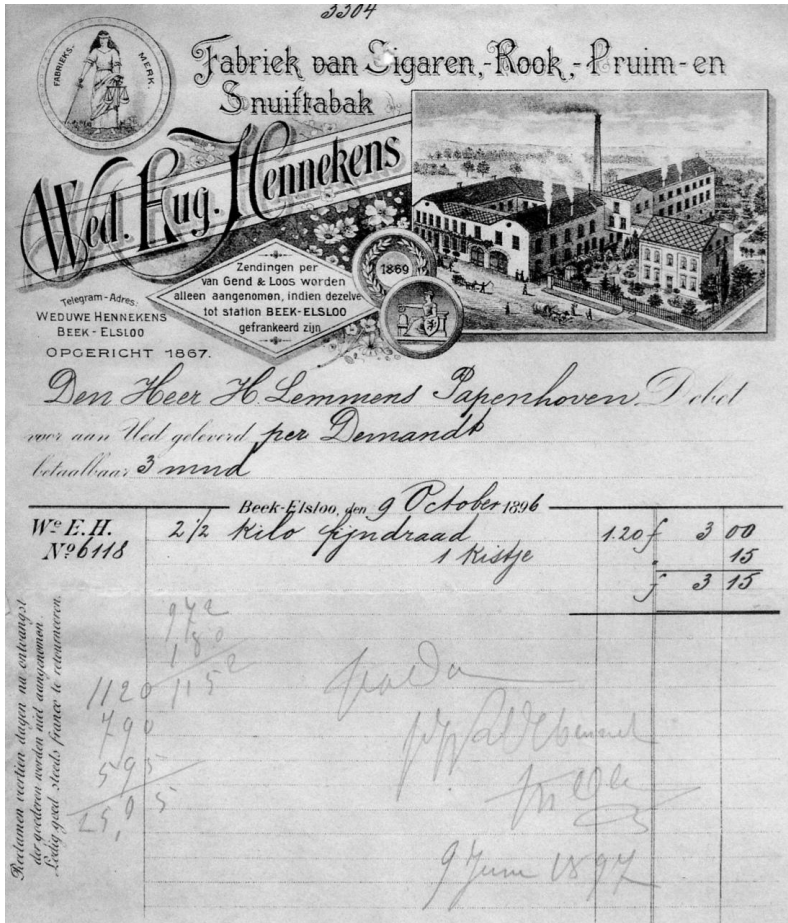 3304
FABRIEKS. MERK.
Fabriek van Sigaren,-Rook,-Pruim-en
Snuiftabak
Wed. Eug. Hennekens
Zendingen per
van Gend & Loos worden
alleen aangenomen, indien dezelve
tot station BEEK-ELSLOO
gefrankeerd zijn
1869
Telegram-Adres:
WEDUWE HENNEKENS
BEEK-ELSLOO
OPGERICHT 1867.
Den Heer H. Lemmens Papenhoven Debet
voor aan Ued geleverd per Demandt
betaalbaar 3 mnd
Beek-Elsloo, den 9 October 1896
We E. H. 2 1/2 kilo fijndraad 1.20 f 3 00
No 6118 1 Kistje " 15
f 3 15
972
180
1152
1120
790
595
25,05
9 Juni 1897
Reclamen veertien dagen na ontvangst
der goederen worden niet aangenomen.
Ledig goed steeds franco te retourneeren.